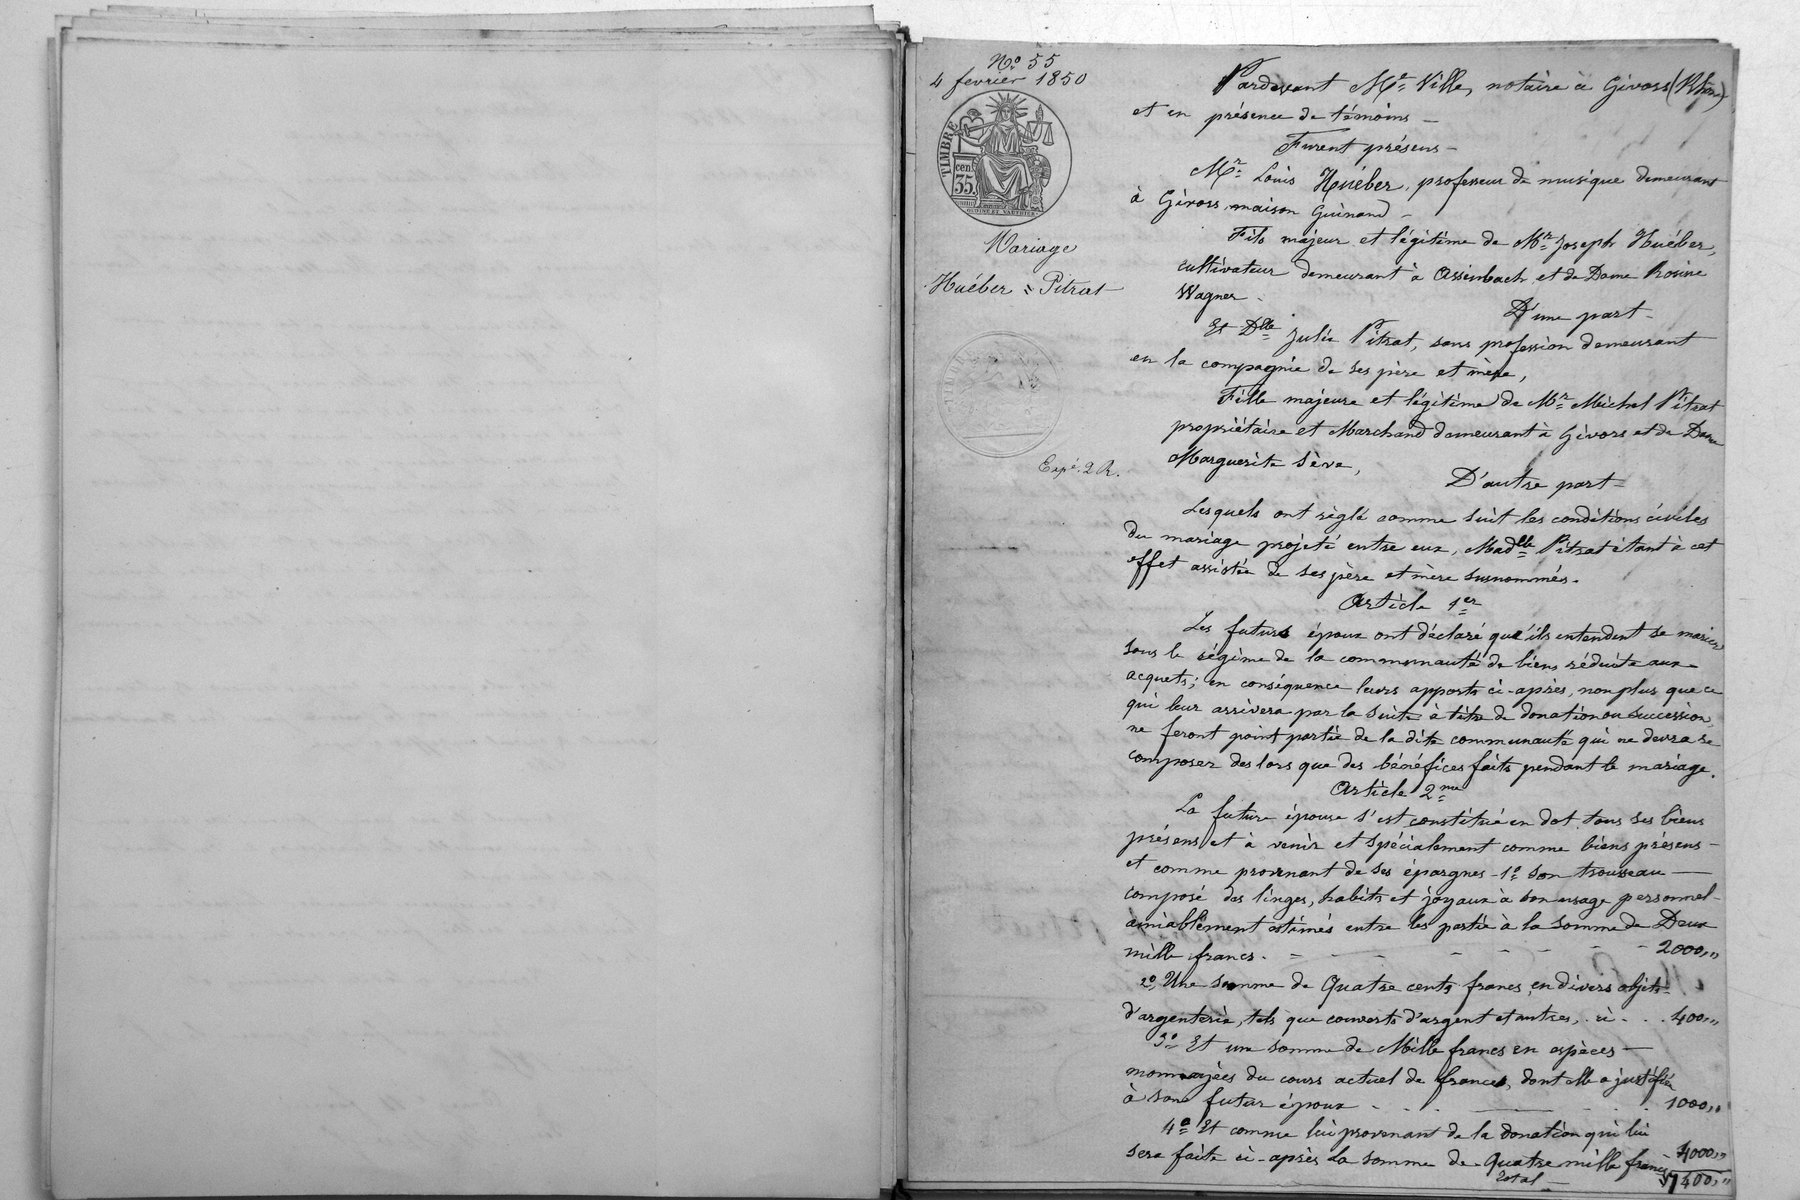 No. 55
4 fevrier 1850
TIMBRE
cen.
35.
Mariage
Huéber = Pitrat
Expé. 2 R.
Pardevant Me. Ville, notaire à Givors (Rhône)
et en présence de témoins —
Furent présens —
Mr. Louis Huéber, professeur de musique demeurant
à Givors, maison Guinand —
Fils majeur et légitime de Mr. Joseph Huéber,
cultivateur demeurant à Assimbach, et de Dame Rosine
Wagner.
D'une part —
Et Dlle Julie Pitrat, sans profession demeurant
en la compagnie de ses père et mère,
Fille majeure et légitime de Mr. Michel Pitrat
propriétaire et Marchand demeurant à Givors et de Dame
Marguerite Sève,
D'autre part —
Lesquels ont réglé comme suit les conditions civiles
du mariage projeté entre eux, Madlle Pitrat étant à cet
effet assistée de ses père et mère susnommés.
Article 1er
Les futurs époux ont déclaré qu'ils entendent se marier
sous le régime de la communauté de biens réduite aux
acquets; en conséquence leurs apports ci-après, non plus que ce
qui leur arrivera par la suite à titre de donation ou succession,
ne feront point partie de la dite communauté qui ne devra se
composer des lors que des bénéfices faits pendant le mariage.
Article 2me
La future épouse s'est constitué en dot tous ses biens
présens et à venir et spécialement comme biens présens —
et comme provenant de ses épargnes - 1o. son trousseau —
composé des linges, habits et joyaux à son usage personnel —
amiablement estimés entre les partie à la somme de Deux
mille francs. - - - - - - 2000,,"
2o. Une somme de Quatre cents francs, en divers objets
d'argenterie, tels que couverts d'argent et autres, ci . . . 400,,"
3o. Et une somme de Mille francs en espèces —
monnayées du cours actuel de france, dont elle a justifié
à son futur époux - . . . — . . 1000,,"
4o. Et comme lui provenant de la donation qui lui
sera faite ci-après la somme de Quatre mille francs 4000,,"
total — 7400,,"